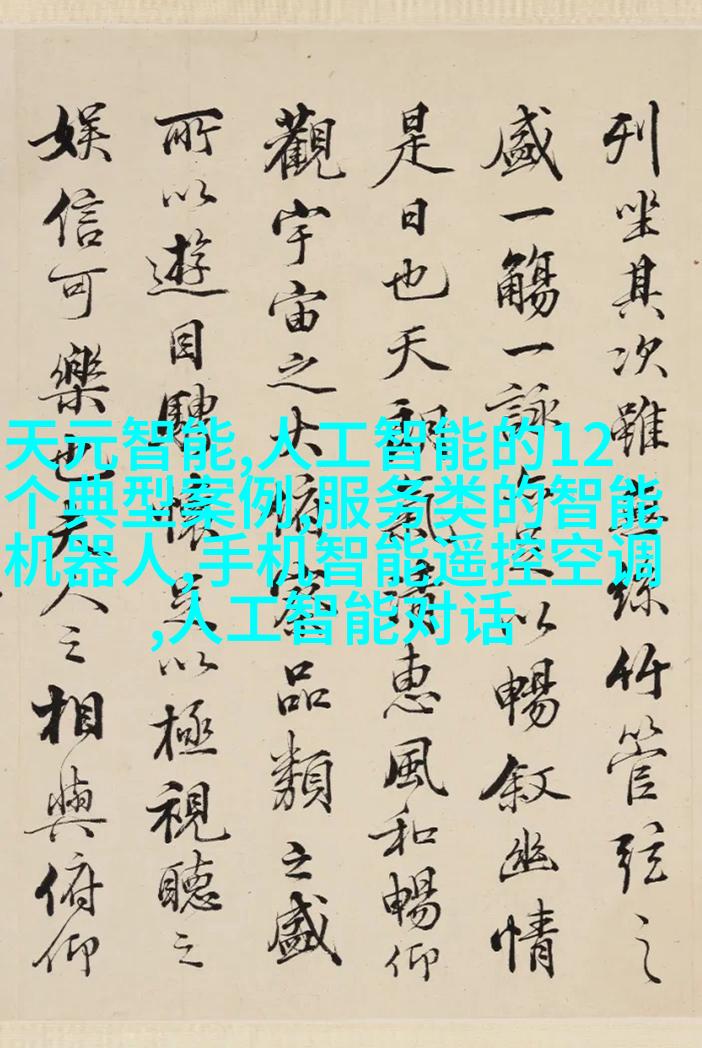 列坐其次雖無絲竹管弦之
盛一觴一詠亦足以暢敘幽情
是日也天朗氣清惠風和暢仰
觀宇宙之大俯察品類之盛
所以遊目騁懷足以極視聽之
娛信可樂也夫人之相與俯仰
天元智能,人工智能的12
个典型案例,服务类的智能
机器人,手机智能遥控空调
,人工智能对话